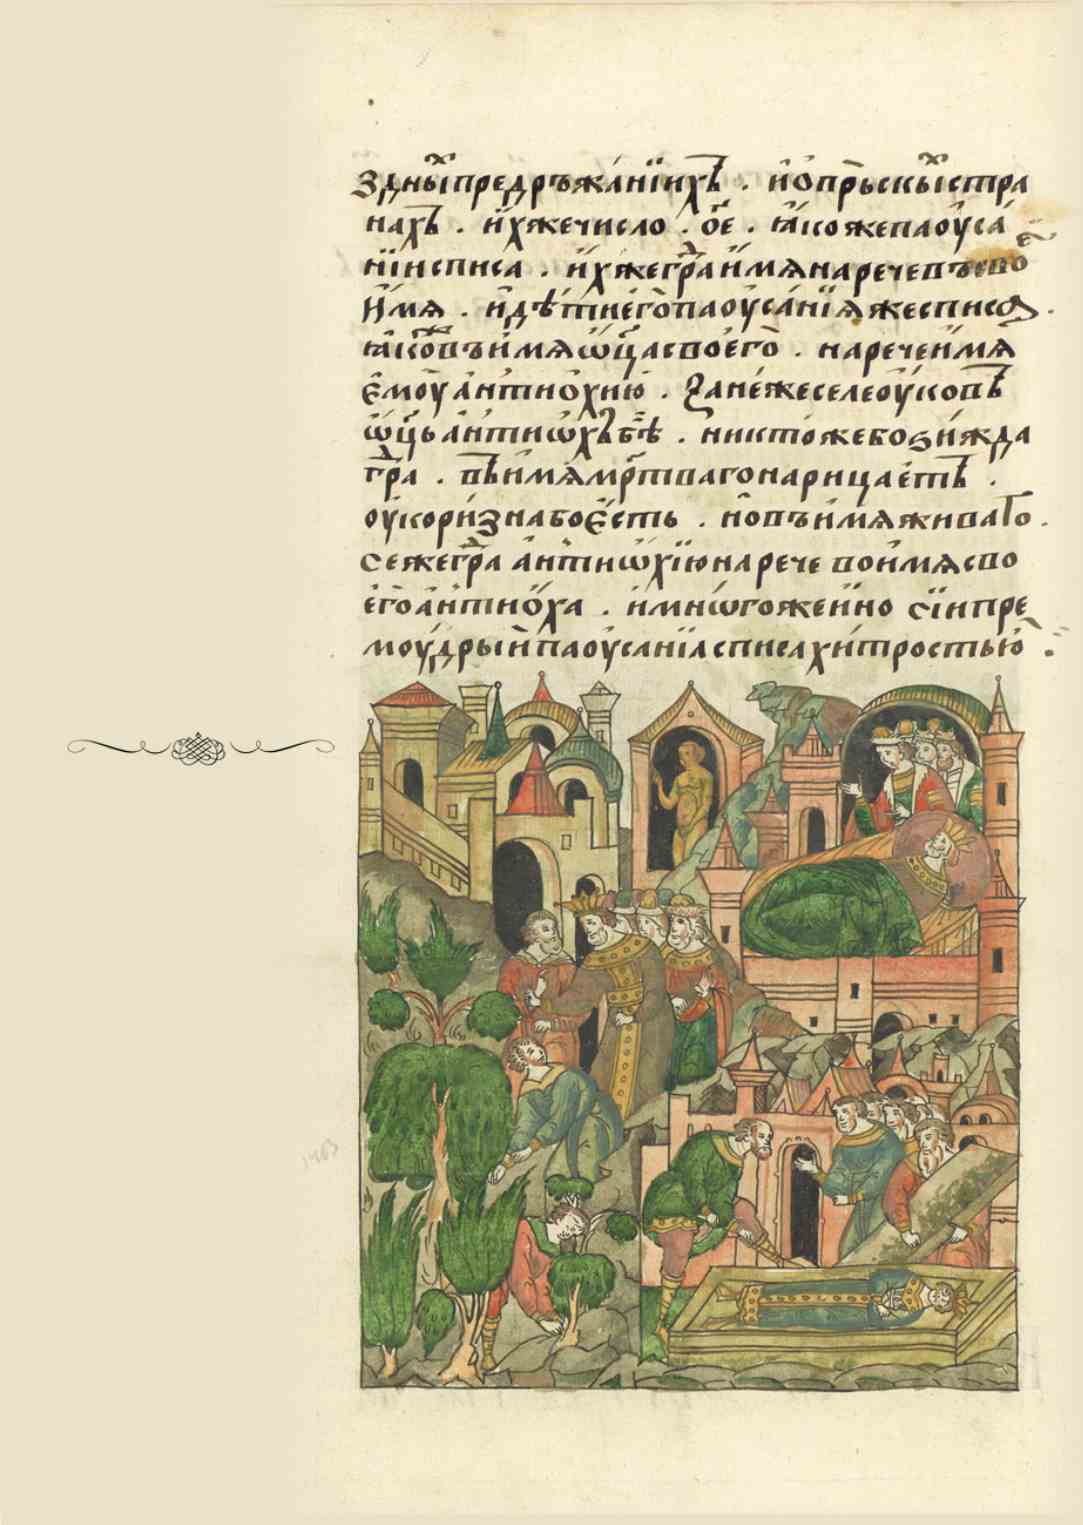 здны́хпредръжа́нїихъ . и҆ѻ҆пръскы́хстра
нахъ . и҆хжечисло . о҃е . ꙗ҆́коже паоу҆са́
нїисписа . и҆хжегра́и҆мѧнаречевъсвое҆
и҆мѧ . и҆дѣ́тиегѡ̀паоу҆са́нїѧжесписа .
ꙗ҆́ковъи҆мѧѡ҆ц҃асвоегѡ̀ . наречеи҆мѧ
є҆моу҆а҆нтио҆хию . Занежеселеоу҆ковъ
ѡ҆ц҃ьа҆нтиѡхъбѣ̀ . никтожебозижда
гра́ . въи҆мѧмр҃твагонарицаетъ .
оу҆кори́знабоє҆сть . но҆въи҆мѧживаго .
сежегра́ а҆нтиѡ҆хїюнарече вои҆мѧсво
егѡ̀а҆нтио҆ха . и҆мнѡ́гоже и҆но сїипре
моу́дрыи҆паоу҆са́нїасписахи́тростью .
1463